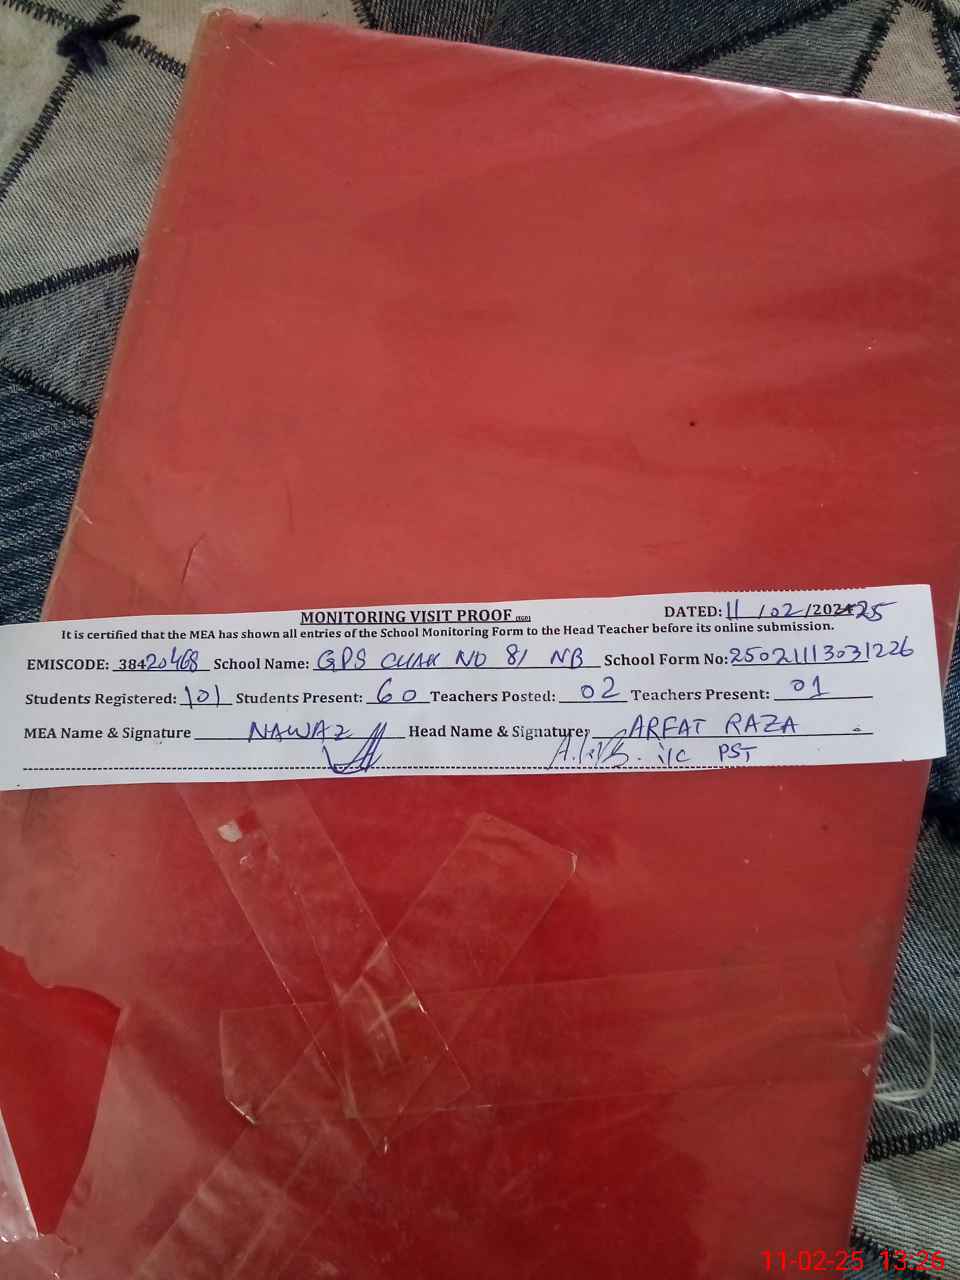 MONITORING VISIT PROOF
DATED: 11/02/2024 25
It is certified that the MEA has shown all entries of the School Monitoring Form to the Head Teacher before its online submission.
EMISCODE: 38420468 School Name: GPS CHAK NO 81 NB School Form No: 25021113031226
Students Registered: 101 Students Present: 60 Teachers Posted: 02 Teachers Present: 01
MEA Name & Signature NAWAZ Head Name & Signature: ARFAT RAZA
i/c PST
11-02-25 13:26